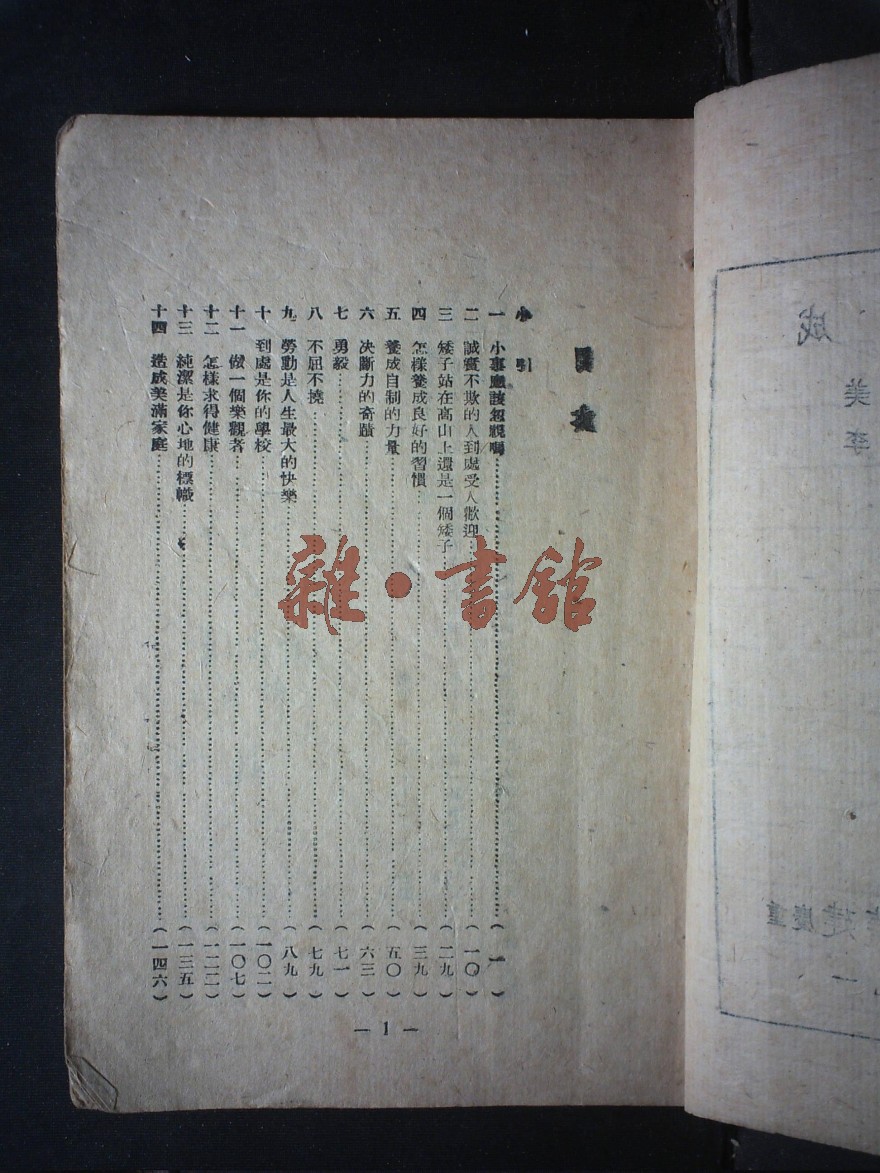 目次
小引
一 小事應該忽視嗎……(一)
二 誠實不欺的人到處受人歡迎……(一〇)
三 矮子站在高山上還是一個矮子……(二九)
四 怎樣養成良好的習慣……(三九)
五 養成自制的力量……(五〇)
六 決斷力的奇蹟……(六三)
七 勇毅……(七一)
八 不屈不撓……(七九)
九 勞動是人生最大的快樂……(八九)
十 到處是你的學校……(一〇二)
十一 做一個樂觀者……(一〇七)
十二 怎樣求得健康……(一二二)
十三 純潔是你心地的標幟……(一三五)
十四 造成美滿家庭……(一四六)
— 1 —
雜·書館
成
美
李
重慶建
一